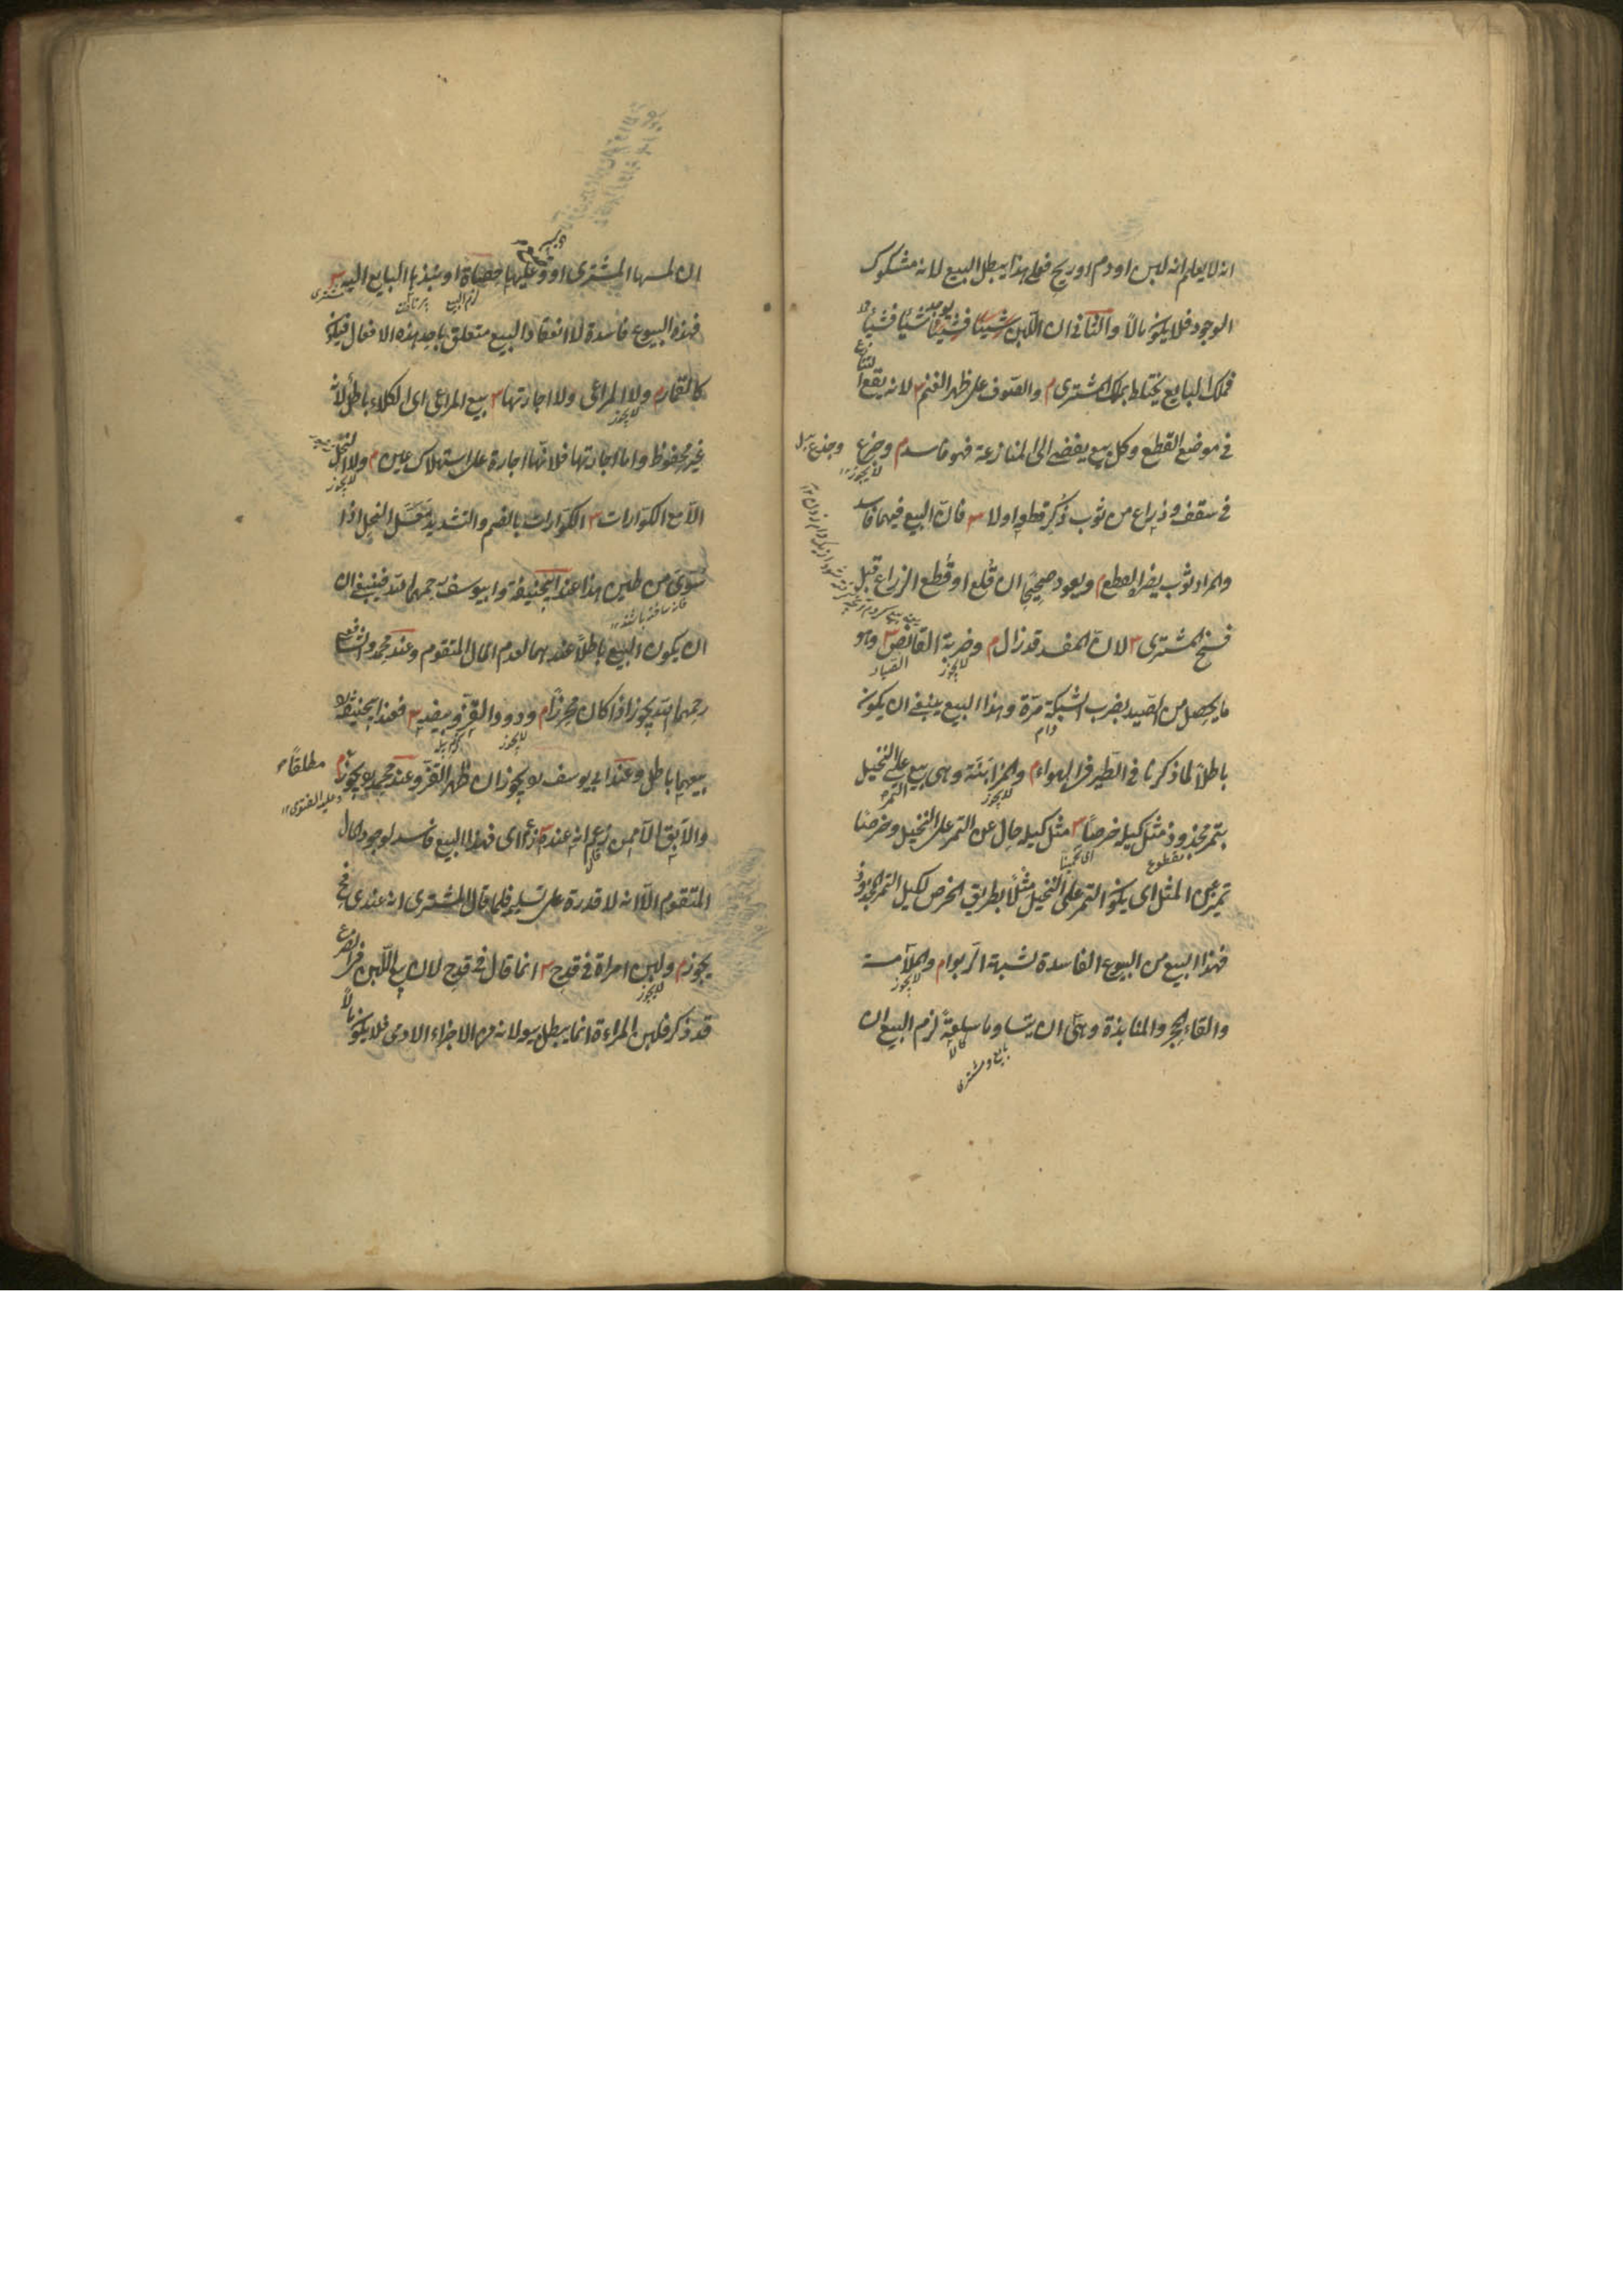 انه لا يعلم انه لبن او دم او ريح فعلى هذا يبطل البيع لانه مشكوك
الوجود فلا يكون مالاً والثانى ان اللبن يوجد شيئًا فشيئًا
فملك البايع يختلط بملك المشترى م والصوف على ظهر الغنم ۳ لانه يقع التنازع
فى موضع القطع وكل بيع يفضى الى المنازعة فهو فاسد م وجذع
لا يجوز
فى سقف وذراع من ثوب ذُكِر قطعه اولا ۳ فان البيع فيهما فاسد
والمراد ثوب يضره القطع م ويعود صحيحًا ان قُلع او قُطع الذراع قبل
فسخ المشترى ۳ لان المفسد قد زال م وضربة القانص ۳ وهو
لا يجوز
الصياد
ما يحصل من الصيد بضرب الشبكة مرّة وهذا البيع ينبغى ان يكون
دام
باطلاً لما ذكرنا فى الطير فى الهواء م والمزابنة وهى بيع التمر على النخيل
لا يجوز
بتمر مجذوذ مثل كيله خرصًا ۳ مثل كيله حال عن التمر على النخيل وخرصًا
مقطوع
اى تخمينًا
تمييز عن المثل اى يكون التمر على النخيل مثلاً بطريق الخرص لكيل التمر المجذوذ
فهذا البيع من البيوع الفاسدة لشبهة الربوا م والملامسة
لا يجوز
والقاء الحجر والمنابذة وهى ان يتساوما سلعةً لزم البيع ان
كالا
بايع و مشترى
ان لمسها المشترى او وضع عليها حصاة او نبذها البايع اليه ۳
لزم البيع
مشترى
فهذه البيوع فاسدة لان انعقاد البيع متعلق باحد هذه الافعال فيكون
كالقمار م ولا المراعى ولا اجارتها ۳ بيع المراعى اى الكلاء باطل لانه
لا يجوز
غير محفوظ واما اجارتها فلانها اجارة على استهلاك عين م ولا النحل
لا يجوز
الا مع الكوارات ۳ الكوارات بالضم والتشديد مَعسَل النحل اذا
سوى من طين هذا عند ابى حنيفة وابى يوسف رحمهما الله فينبغى ان
ان يكون البيع باطلاً عندهما لعدم المال المتقوم وعند محمد والشافعى
رحمهما الله يجوز اذا كان محرزًا م ودود القز وبيضه ۳ فعند ابى حنيفة
لا يجوز
بيعهما باطل وعند ابى يوسف يجوز ان ظهر القز وعند محمد يجوز م
مطلقًا
وعليه الفتوى
والآبق الا ممن زعم انه عنده ۳ اى فهذا البيع فاسد لوجود المال
المتقوم الا انه لا قدرة على تسليمه فلما قال المشترى انه عندى فح
يجوز م ولبن امراة فى قدح ۳ انما قال فى قدح لان بيع اللبن فى الضرع
لا يجوز
قد ذكر فلبن المراءة انما يبطل بيعه لانه من الاجزاء الادمى فلا يكون مالاً